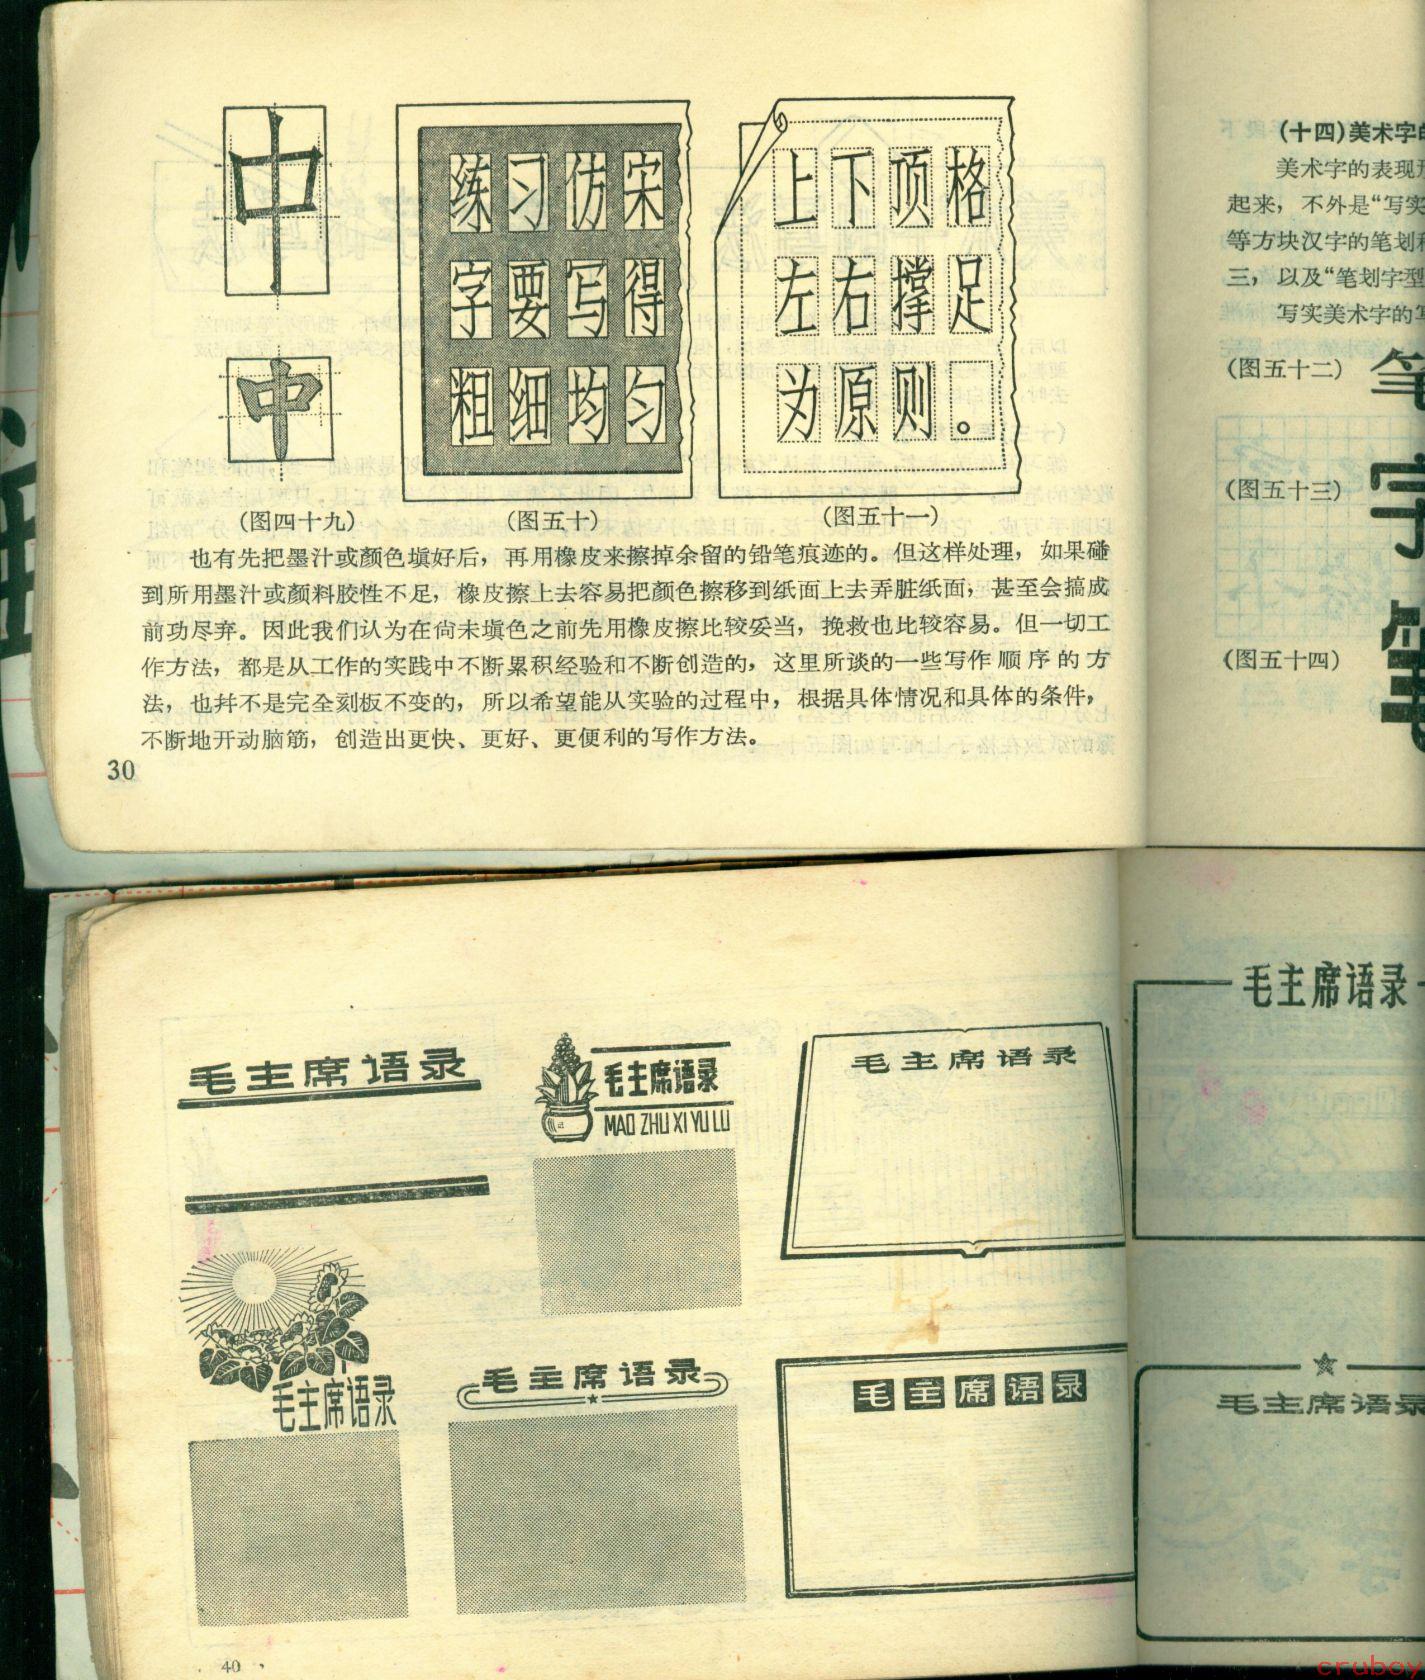 中
中
练习仿宋
字要写得
粗细均匀
上下顶格
左右撑足
为原则。
(图四十九)
(图五十)
(图五十一)
也有先把墨汁或颜色填好后，再用橡皮来擦掉余留的铅笔痕迹的。但这样处理，如果碰
到所用墨汁或颜料胶性不足，橡皮擦上去容易把颜色擦移到纸面上去弄脏纸面，甚至会搞成
前功尽弃。因此我们认为在尚未填色之前先用橡皮擦比较妥当，挽救也比较容易。但一切工
作方法，都是从工作的实践中不断累积经验和不断创造的，这里所谈的一些写作顺序的方
法，也并不是完全刻板不变的，所以希望能从实验的过程中，根据具体情况和具体的条件，
不断地开动脑筋，创造出更快、更好、更便利的写作方法。
30
(十四)美术字的
美术字的表现形
起来，不外是“写实
等方块汉字的笔划和
三，以及“笔划字型
写实美术字的写
(图五十二)
笔
(图五十三)
字
(图五十四)
笔
毛主席语录
毛主席语录
MAO ZHU XI YU LU
毛主席语录
毛主席语录
毛主席语录
毛主席语录
40
毛主席语录
毛主席语录
cruboy